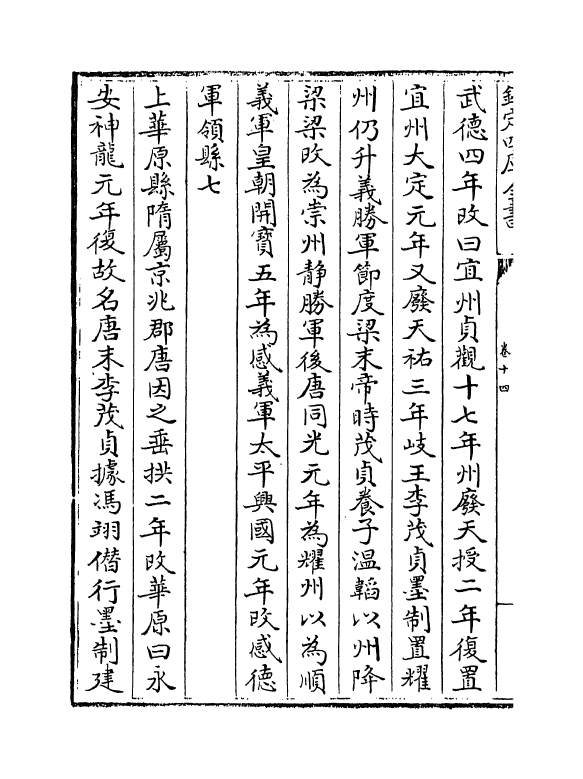 欽定四庫全書
卷十四
武德四年改曰宜州貞觀十七年州廢天授二年復置
宜州大定元年又廢天祐三年岐王李茂貞墨制置耀
州仍升義勝軍節度梁末帝時茂貞養子温韜以州降
梁梁改為崇州静勝軍後唐同光元年為耀州以為順
義軍皇朝開寶五年為感義軍太平興國元年改感德
軍領縣七
上華原縣隋屬京兆郡唐因之垂拱二年改華原曰永
安神龍元年復故名唐末李茂貞據馮翊僭行墨制建